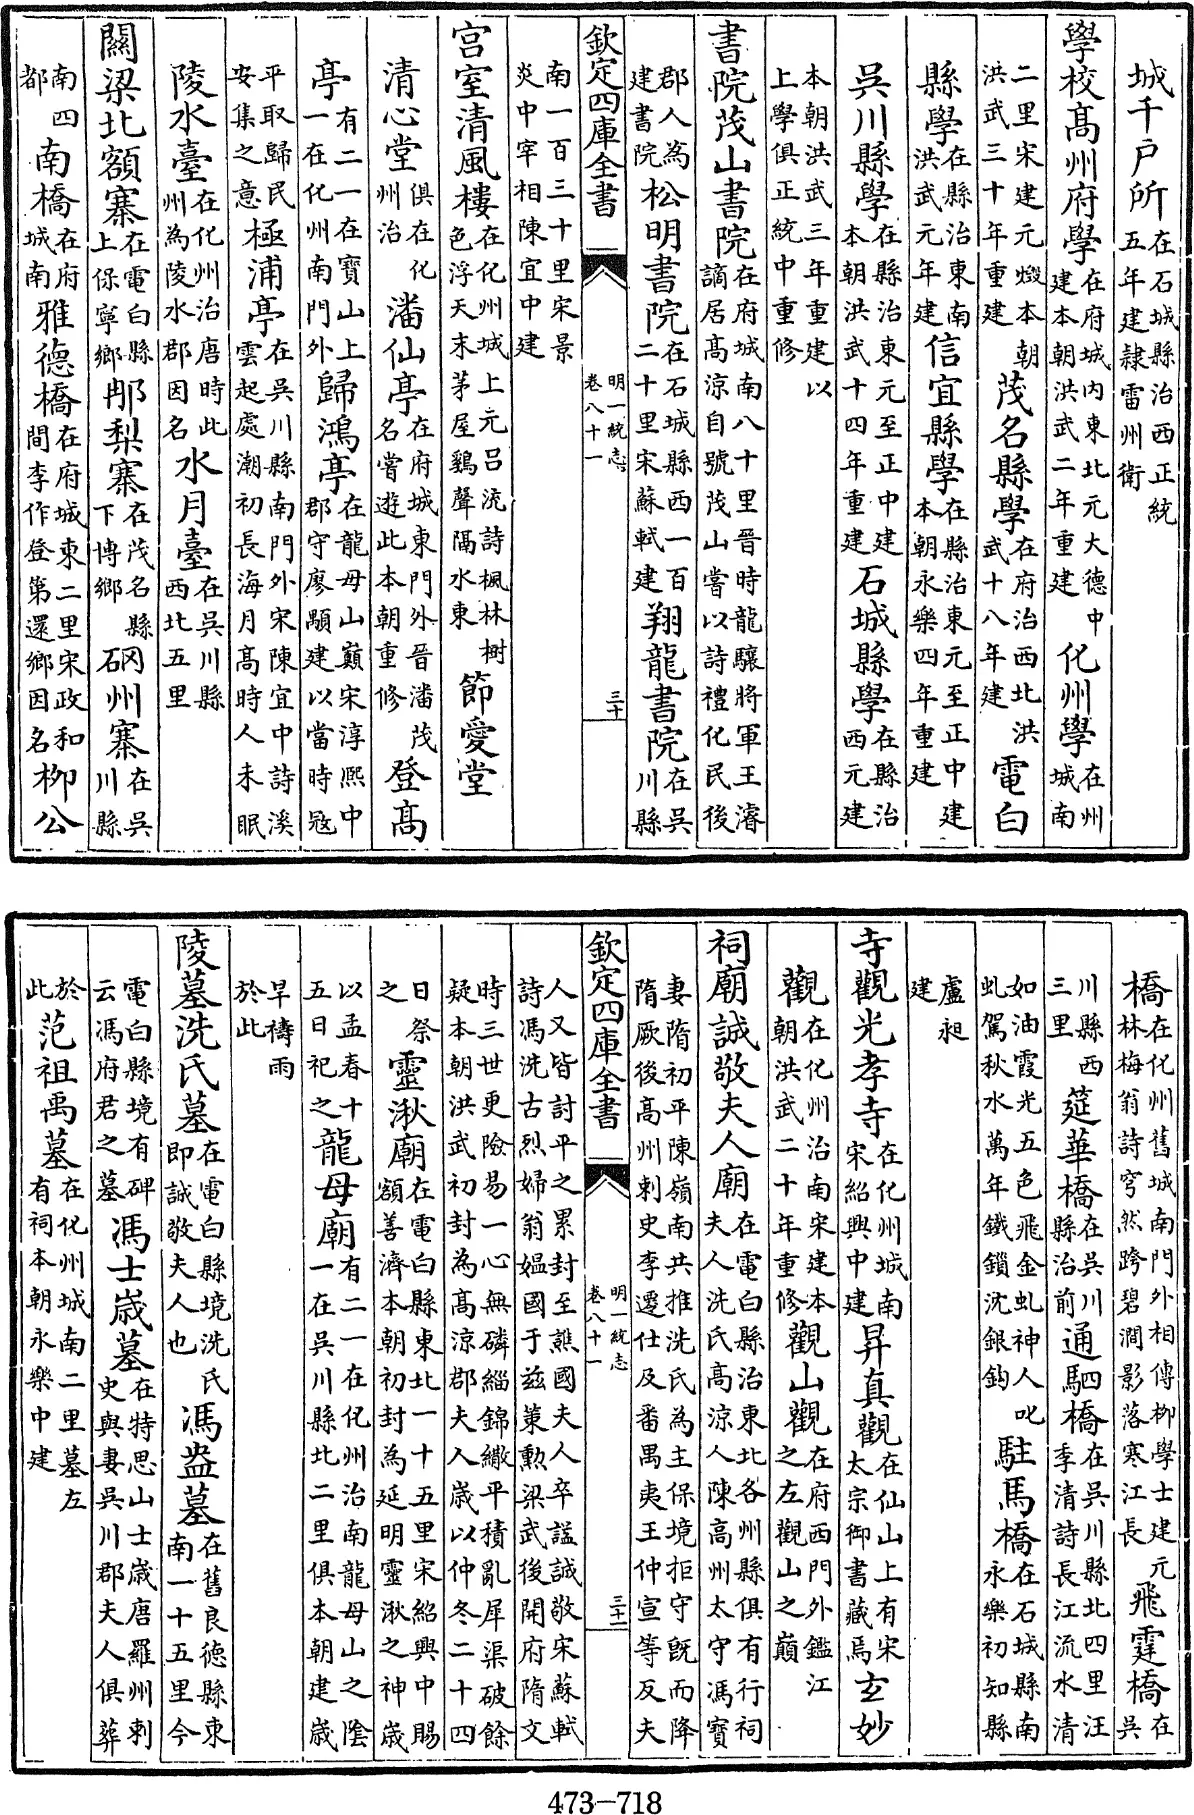 城千户所在石城縣治西正統五年建隸雷州衛
學校髙州府學在府城内東北元大德中建本朝洪武二年重建化州學在州城南
二里宋建元燬本朝洪武三十年重建茂名縣學在府治西北洪武十八年建電白
縣學在縣治東南洪武元年建信宜縣學在縣治東元至正中建本朝永樂四年重建
吳川縣學在縣治東元至正中建本朝洪武十四年重建石城縣學在縣治西元建
本朝洪武三年重建以上學俱正統中重修
書院茂山書院在府城南八十里晉時龍驤將軍王濬謫居髙涼自號茂山嘗以詩禮化民後
郡人為建書院松明書院在石城縣西一百二十里宋蘇軾建翔龍書院在吳川縣
欽定四庫全書 明一統志卷八十一 三十
南一百三十里宋景炎中宰相陳宜中建
宫室清風樓在化州城上元吕流詩楓林樹色浮天末茅屋鷄聲隔水東節愛堂
清心堂俱在化州治潘仙亭在府城東門外晉潘茂名嘗遊此本朝重修登髙
亭有二一在寶山上一在化州南門外歸鴻亭在龍母山巔宋淳熙中郡守廖顒建以當時寇
平取歸民安集之意極浦亭在吳川縣南門外宋陳宜中詩溪雲起處潮初長海月髙時人未眠
陵水臺在化州治唐時此州為陵水郡因名水月臺在吳川縣西北五里
關梁北額寨在電白縣上保寧鄉那梨寨在茂名縣下博鄉硇州寨在吳川縣
南四都南橋在府城南雅德橋在府城東二里宋政和間李作登第還鄉因名柳公
橋在化州舊城南門外相傳柳學士建元林梅翁詩穹然跨碧澗影落寒江長飛霆橋在吳
川縣西三里筵華橋在吳川縣治前通駟橋在吳川縣北四里汪季清詩長江流水清
如油霞光五色飛金虬神人叱虬駕秋水萬年鐵鎖沈銀鈎駐馬橋在石城縣南永樂初知縣
盧昶建
寺觀光孝寺在化州城南宋紹興中建昇真觀在仙山上有宋太宗御書藏焉玄妙
觀在化州治南宋建本朝洪武二十年重修觀山觀在府西門外鑑江之左觀山之巔
祠廟誠敬夫人廟在電白縣治東北各州縣俱有行祠夫人洗氏髙涼人陳高州太守馮寶
妻隋初平陳嶺南共推洗氏為主保境拒守旣而降隋厥後高州刺史李遷仕及番禺夷王仲宣等反夫
欽定四庫全書 明一統志卷八十一 三十一
人又皆討平之累封至譙國夫人卒諡誠敬宋蘇軾詩馮洗古烈婦翁媪國于兹䇿勲梁武後開府隋文
時三世更險易一心無磷緇錦繖平積亂犀渠破餘疑本朝洪武初封為髙涼郡夫人歲以仲冬二十四
日祭之靈湫廟在電白縣東北一十五里宋紹興中賜額善濟本朝初封為延明靈湫之神歲
以孟春十五日祀之龍母廟有二一在化州治南龍母山之陰一在吳川縣北二里俱本朝建歲
旱禱雨於此
陵墓洗氏墓在電白縣境洗氏即誠敬夫人也馮盎墓在舊良德縣東南一十五里今
電白縣境有碑云馮府君之墓馮士歲墓在特思山士歲唐羅州刺史與妻吳川郡夫人俱葬
於此范祖禹墓在化州城南二里墓左有祠本朝永樂中建
473-718